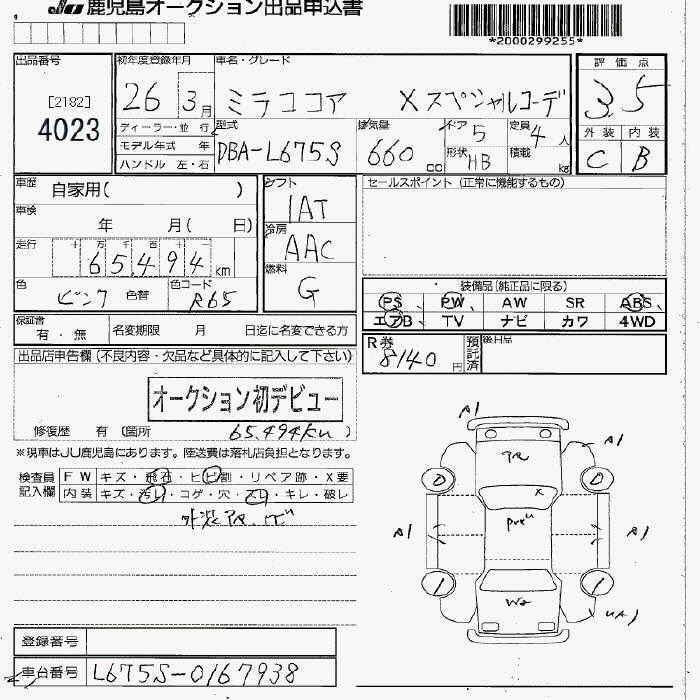 JU 鹿児島オークション出品申込書
*2000299255*
出品番号
[2182]
4023
初年度登録年月
26 3月
車名・グレード
ミラココア Xスペシャルコーデ
評価点
3.5
外装 内装
C B
ディーラー・並行
モデル年式 年
ハンドル 左・右
型式
DBA-L675S
排気量
660 cc
ドア
5
定員
4人
形状
HB
積載
kg
車歴 自家用( )
車検
年 月( 日)
走行
十万千百十一
65,494 km
色
ピンク 色替
色コード
R65
シフト
IAT
冷房
AAC
燃料
G
セールスポイント (正常に機能するもの)
装備品(純正品に限る)
PS PW AW SR ABS
エアB TV ナビ カワ 4WD
保証書
有・無
名変期限 月 日迄に名変できる方
R券
8140円
預託済
後日品
出品店申告欄 (不良内容・欠品など具体的に記入して下さい)
オークション初デビュー
修復歴 有 (箇所 65,494km )
※現車はJU鹿児島にあります。陸送費は落札店負担となります。
検査員
記入欄
FW キズ・飛石・ヒビ割・リペア跡・X要
内装 キズ・汚れ・コゲ・穴・スレ・キレ・破レ
A1
A1
A1
A1
UA1
X
登録番号
車台番号 L675S-0167938